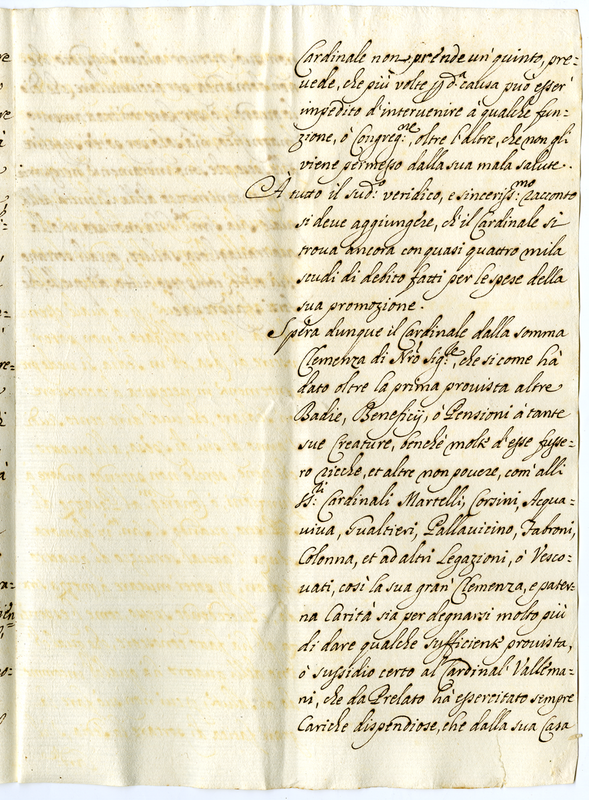 Cardinale non prende un quinto, pre=
uede, che più volte d.ª causa può esser'
impedito d'interuenire à qualche fun=
zione, ò Congreg.ne, oltre l'altre, che non gli
viene permesso dalla sua mala salute.
À tutto il sud.º veridico, e sinceriss.mo racconto
si deve aggiungere, ch'il Cardinale si
troua ancora con quasi quattro mila
scudi di debito fatti per le spese della
sua promozione.
Spera dunque il Cardinale dalla somma
Clemenza di Nrò Sig.re, che si come hà
dato oltre la prima prouista altre
Badie, Beneficij, ò Pensioni à tante
sue Creature, benche molte d'esse fusse=
ro ricche, et altre non pouere, com'alli
SS.ri Cardinali Martelli, Corsini, Acqua=
viva, Gualtieri, Pallauicino, Fabroni,
Colonna, et ad altri Legazioni, ò Vesco=
uati, così la sua gran' Clemenza, e pater=
na Carità sia per degnarsi molto più
di dare qualche sufficiente prouista,
ò sussidio certo al Cardinal Vallema=
ni, che da Prelato hà essercitato sempre
Cariche dispendiose, che dalla sua Casa